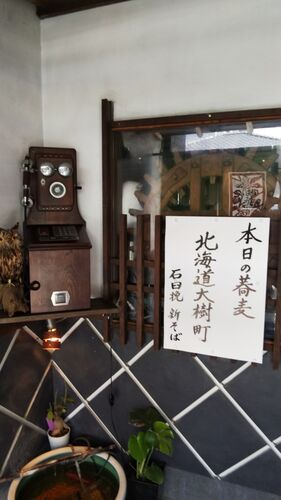 本日の蕎麦
北海道大樹町
石臼挽 新そば